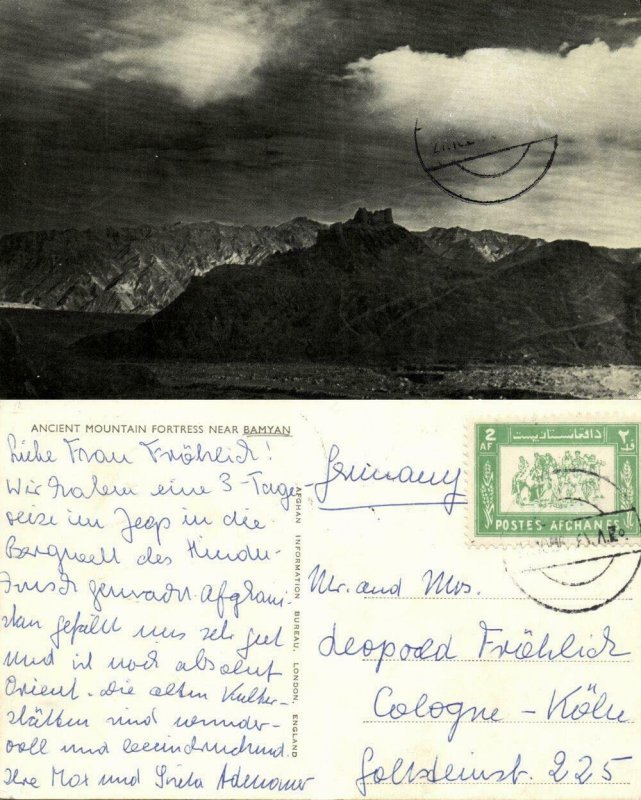 ANCIENT MOUNTAIN FORTRESS NEAR BAMYAN
Liebe Frau Fröhlich!
Wir haben eine 3-Tage-
reise im Jeep in die
Bergwelt des Hindu-
kusch gemacht. Afghani-
stan gefällt uns sehr gut
und ist noch absolut
Orient. Die alten Kultur-
stätten sind wunder-
voll und beeindruckend.
Ihre Max und Adenauer
AFGHAN INFORMATION BUREAU, LONDON, ENGLAND
Germany
2
AF
د افغانستان پست
۲
POSTES AFGHANES
Mr. and Mrs.
Leopold Fröhlich
Cologne - Köln
225